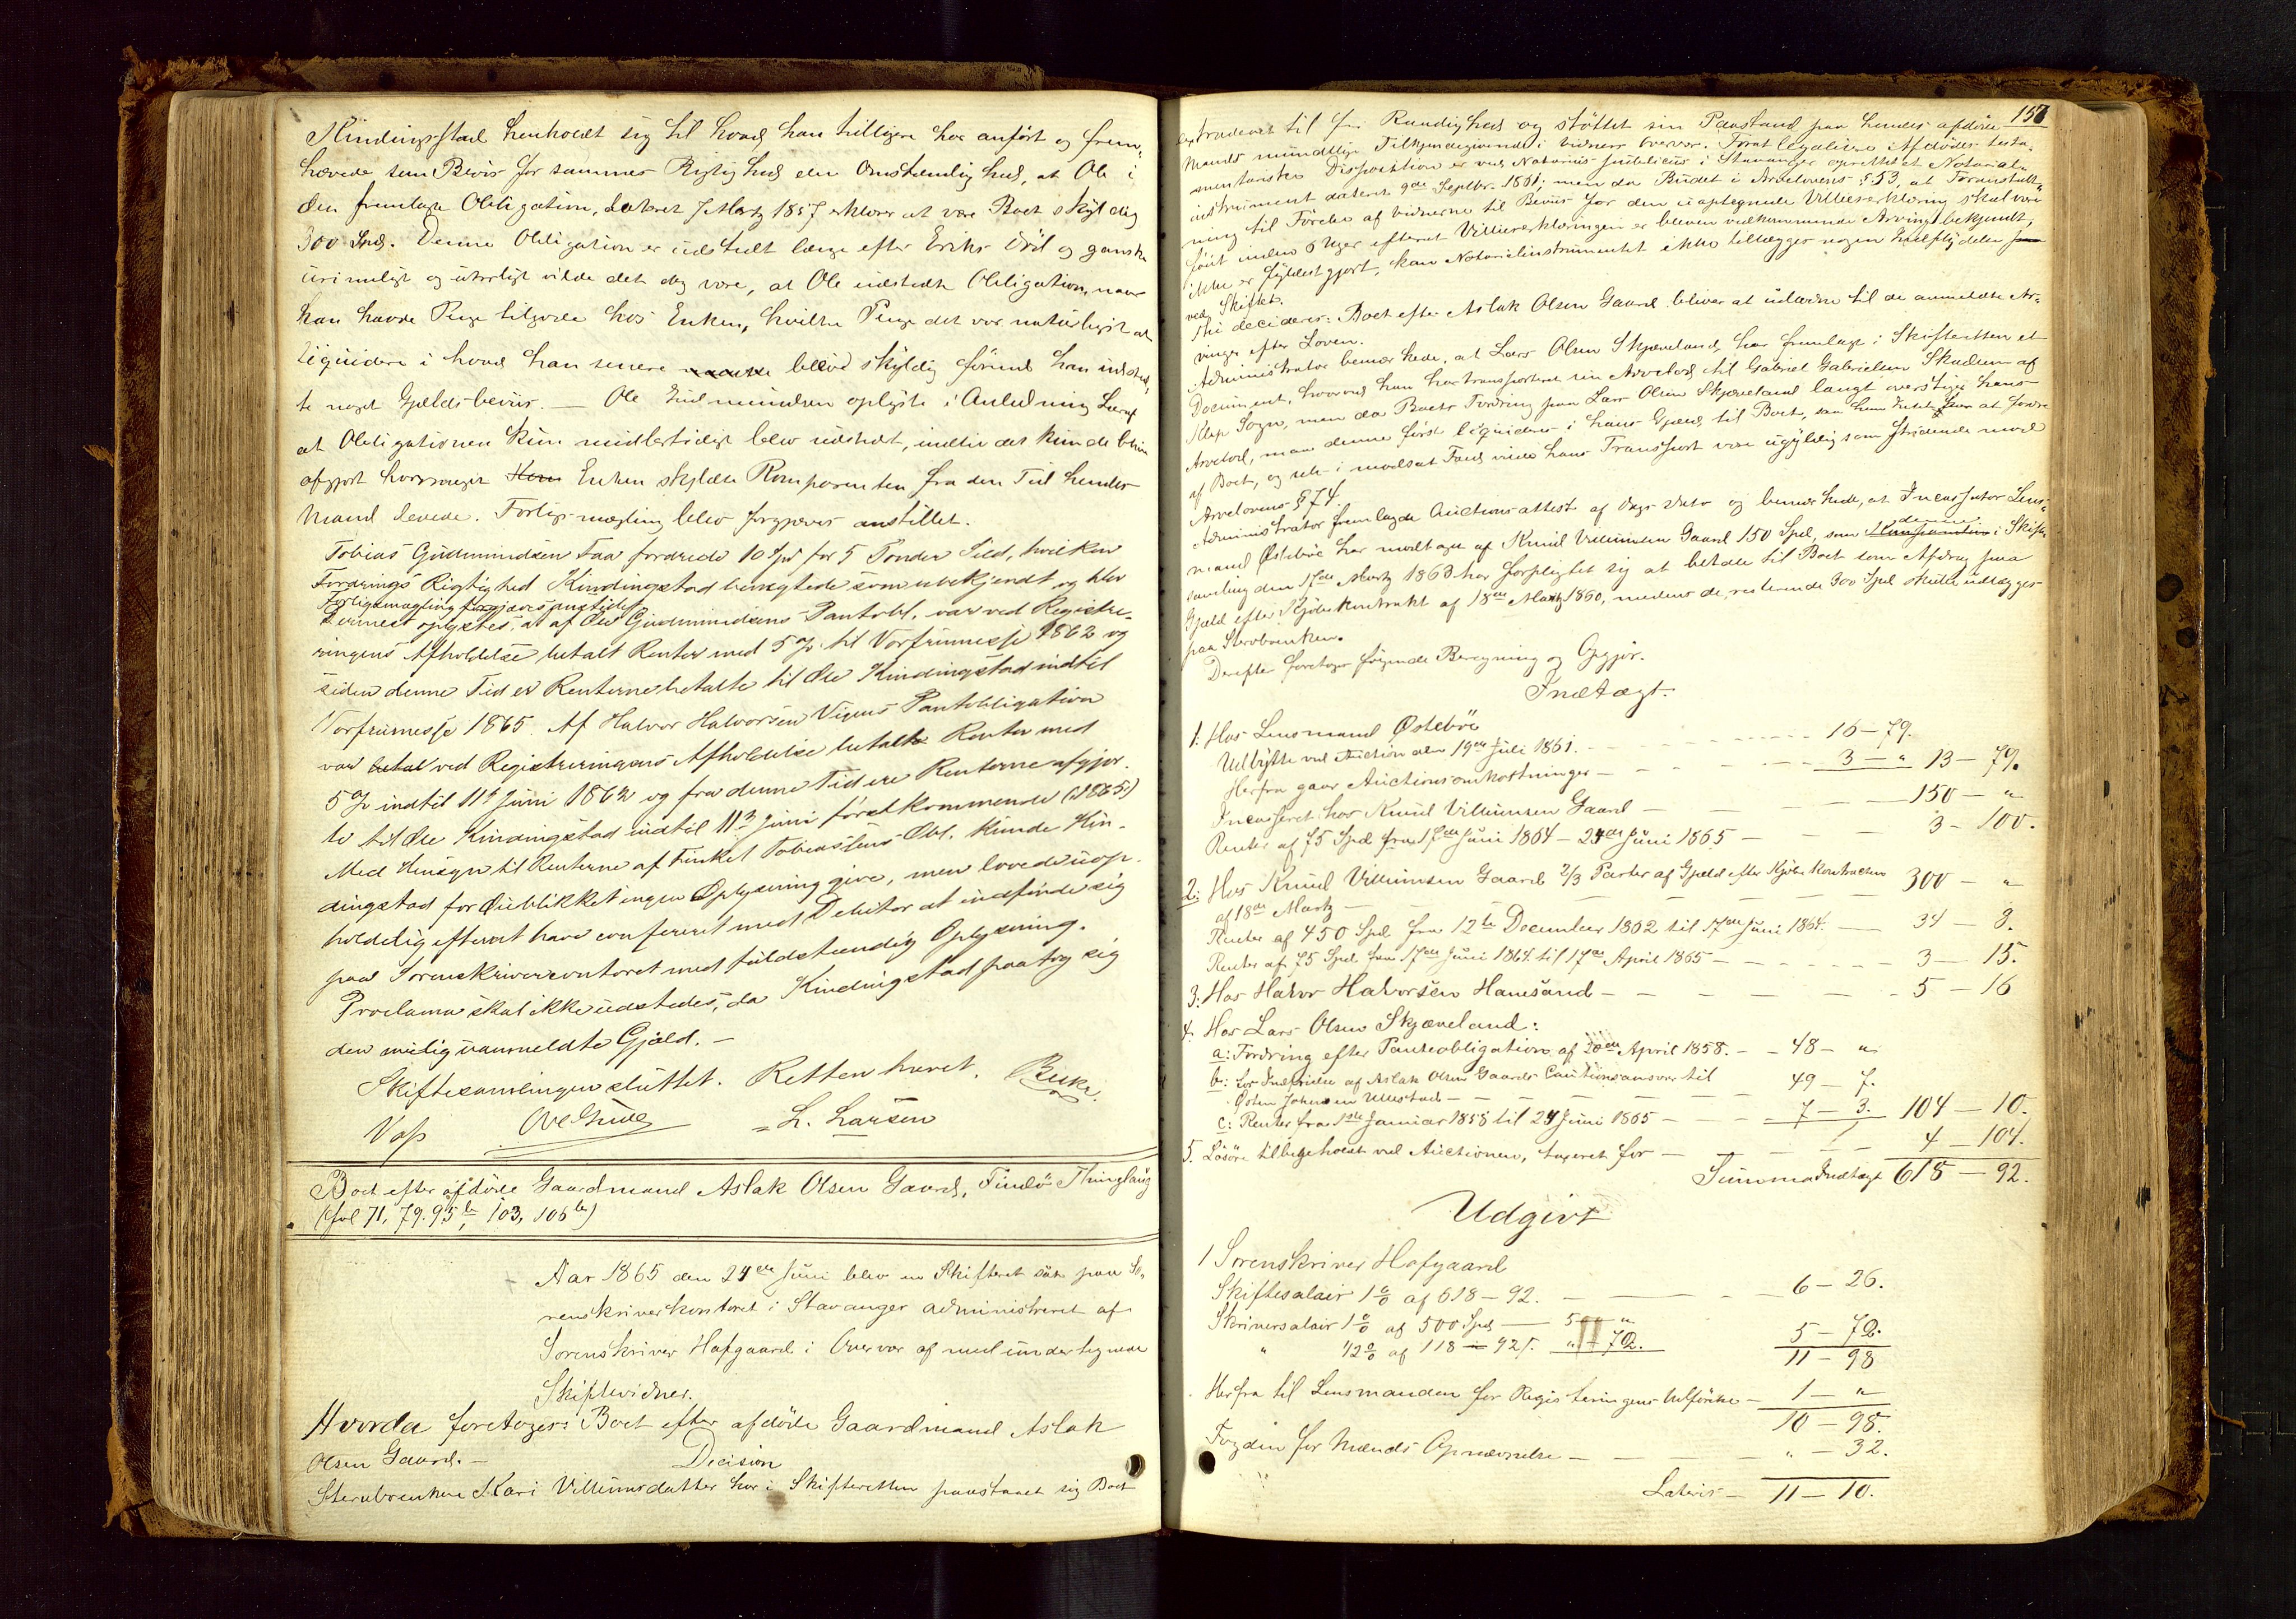 Kindingstad henholdt sig til hvad han tidligere har anført og frem-
hævede som Bevis for sammes Rigtighed den Omstændighed, at Ole i
den fremlagte Obligation, dateret 7 Martz 1857 erklærer at være Boet skyldig
300 Spd. Denne Obligation er udstedt længe efter Eriks Död og ganske
urimeligt og utroligt vilde det dog være, at Ole udstedte Obligation, naar
han havde Penge tilgode hos Enken, hvilke Penge det var naturligst at
liqvidere i hvad han senere blev skyldig förend han udsted-
te noget Gjeldsbeviis. — Ole Gudmundsen oplyste i Anledning heraf
at Obligationen kun midlertidigt blev udstedt, indtil det kunde blive
afgjort hvormeget Enken skyldte Komparenten fra den Tid hendes
Mand levede. Forligsmægling blev forgjæves anstillet.
Tobias Gudmundsen Faa fordrede 10 Spd for 5 Tönder Sild, hvilken
Fordrings Rigtighed Kindingstad benegtede som ubekjendt og blev
Forligsmægling forgjæves prøvet
Dernest oplystes, at af Ole Gudmundsens Pantobl. var ved Registre-
ringens Afholdelse betalt Renter med 5 % til Vorfruemesse 1862 og
siden denne Tid er Renterne betalte til Ole Kindingstad indtil
Vorfruemesse 1865. Af Halvor Halvorsen Vigens Pantobligation
var ved Registreringens Afholdelse betalte Renter med
5 % indtil 11te Juni 1862 og fra denne Tid ere Renterne afgjor-
te til Ole Kindingstad indtil 11te Juni förstkommende (1865)
Med Hensyn til Renterne af Tobiassens Obl. kunde Kin-
dingstad for Öieblikket ingen Oplysning give, men lovede uop-
holdelig efterat have confereret med Debitor at indfinde sig
paa Sorenskrivercontoret med fuldstændig Oplysning.
Proclama skal ikke udstedes, da Kindingstad paatog sig
den mulig uanmeldte Gjæld. —
Skiftesamlingen sluttet. Retten hævet.
L. Larsen
Boet efter afdöde Gaardmand Aslak Olsen Gaard, Findö Thinglaug
(fol 71, 79. 95 b, 103, 106 b)
Aar 1865 den 24de Juni blev en Skifteret sat paa So-
renskriverkontoret i Stavanger administreret af
Sorenskriver Hofgaard i Overvær af medundertegnede
Skiftevidner.
Hvorda foretoges: Boet efter afdöde Gaardmand Aslak
Olsen Gaard. —
Decision
Stervboenken Kari Villumsdatter har i Skifteretten paastaaet sig Boet
157
extraderet til fri Raadighed og stöttet sin Paastand paa hendes afdöde
Mands mundtlige Tilkjendegivende i Vidners Overvær. Forat legalisere Afdödes testa-
mentariske Disposition er ved Notarius publicus i Stavanger oprettet et Notarial-
instrument dateret 9de Septbr. 1861; men da Budet i Arvelovens § 53, at Foranstalt-
ning til Förelse af Vidnerne til Beviis for den uoptegnede Villieserklæring skal være
föiet inden 6 Uger efterat Villieserklæringen er bleven vedkommende Arving bekjendt,
ikke er fyldestgjort, kan Notarialinstrumentet ikke tillægges nogen Indflydelse
ved Skiftet.
Thi decideres: Boet efter Aslak Olsen Gaard bliver at udlodde til de anmeldte Ar-
vinger efter Loven.
Administrator bemærkede, at Lars Olsen Skjæveland har fremlagt i Skifteretten et
Document, hvorved han har transporteret sin Arvelod til Gabriel Gabrielsen Skadem af
Klep Sogn, men da Boets Fordring paa Lars Olsen Skjæveland langt overstiger hans
Arvelod, maa denne först liqvideres i hans Gjæld til Boet, saa han Intet har at fordre
af Boet, og selv i modsat Fald vilde hans Transport være ugyldig som stridende mod
Arvelovens § 74.
Administrator fremlagde Auctionsattest af Dags Dato og bemærkede, at Incassator Lens-
mand Östebøe har modtaget af Knud Villumsen Gaard 150 Spd, som denne i Skifte-
samling den 17de Martz 1863 har forpligtet sig at betale til Boet som Afdrag paa
Gjæld efter Kjöbekontrakt af 18de Martz 1860, medens de resterende 300 Spd skulde udlægges
paa Stervboenken.
Derefter foretoges fölgende Beregning og Opgjör.
Indtægt.
1. Hos Lensmand Östebøe
Udbytte ved Auction den 19de Juli 1861. — 16 — 79.
Herfra gaar Auctionsomkostninger — 3 — " 13 — 79.
Incasseret hos Knud Villumsen Gaard — 150 — "
Renter af 75 Spd fra 17de Juni 1864 — 24de Juni 1865 — 3 — 100.
2: Hos Knud Villumsen Gaard 2/3 Parter af Gjæld efter Kjöbekontracten
af 18de Martz — 300 — "
Renter af 450 Spd fra 12te December 1862 til 17de Juni 1864. — 34 — 8.
Renter af 75 Spd. fra 17de Juni 1864 til 17de April 1865 — 3 — 15.
3: Hos Halvor Halvorsen Hanesand — 5 — 16
4. Hos Lars Olsen Skjæveland:
a: Fordring efter Panteobligation af 20de April 1858. — 48 — "
b: for Indfrielse af Aslak Olsen Gaards Cautionsansvar til
Östen Johnsen Ullestad — 49 — 7.
c: Renter fra 1ste Januar 1858 til 24 Juni 1865 — 7 — 3. 104 — 10.
5. Lösöre tilbageholdt ved Auctionen, taxeret for — 4 — 104.
Summa Indtægt 618 — 92.
Udgivt
1 Sorenskriver Hofgaard
Skiftesalair 1 % af 618 — 92. — 6 — 26.
Skriversalair 1 % af 500 Spd — 5 — "
" 1/2 % af 118 — 92 s. " — 72. 5 — 72.
11 — 98
Herfra til Lensmanden for Registreringens Udförelse — 1 — "
10 — 98.
Fogden for Mænds Opnævnelse — " — 32.
Lateris — 11 — 10.